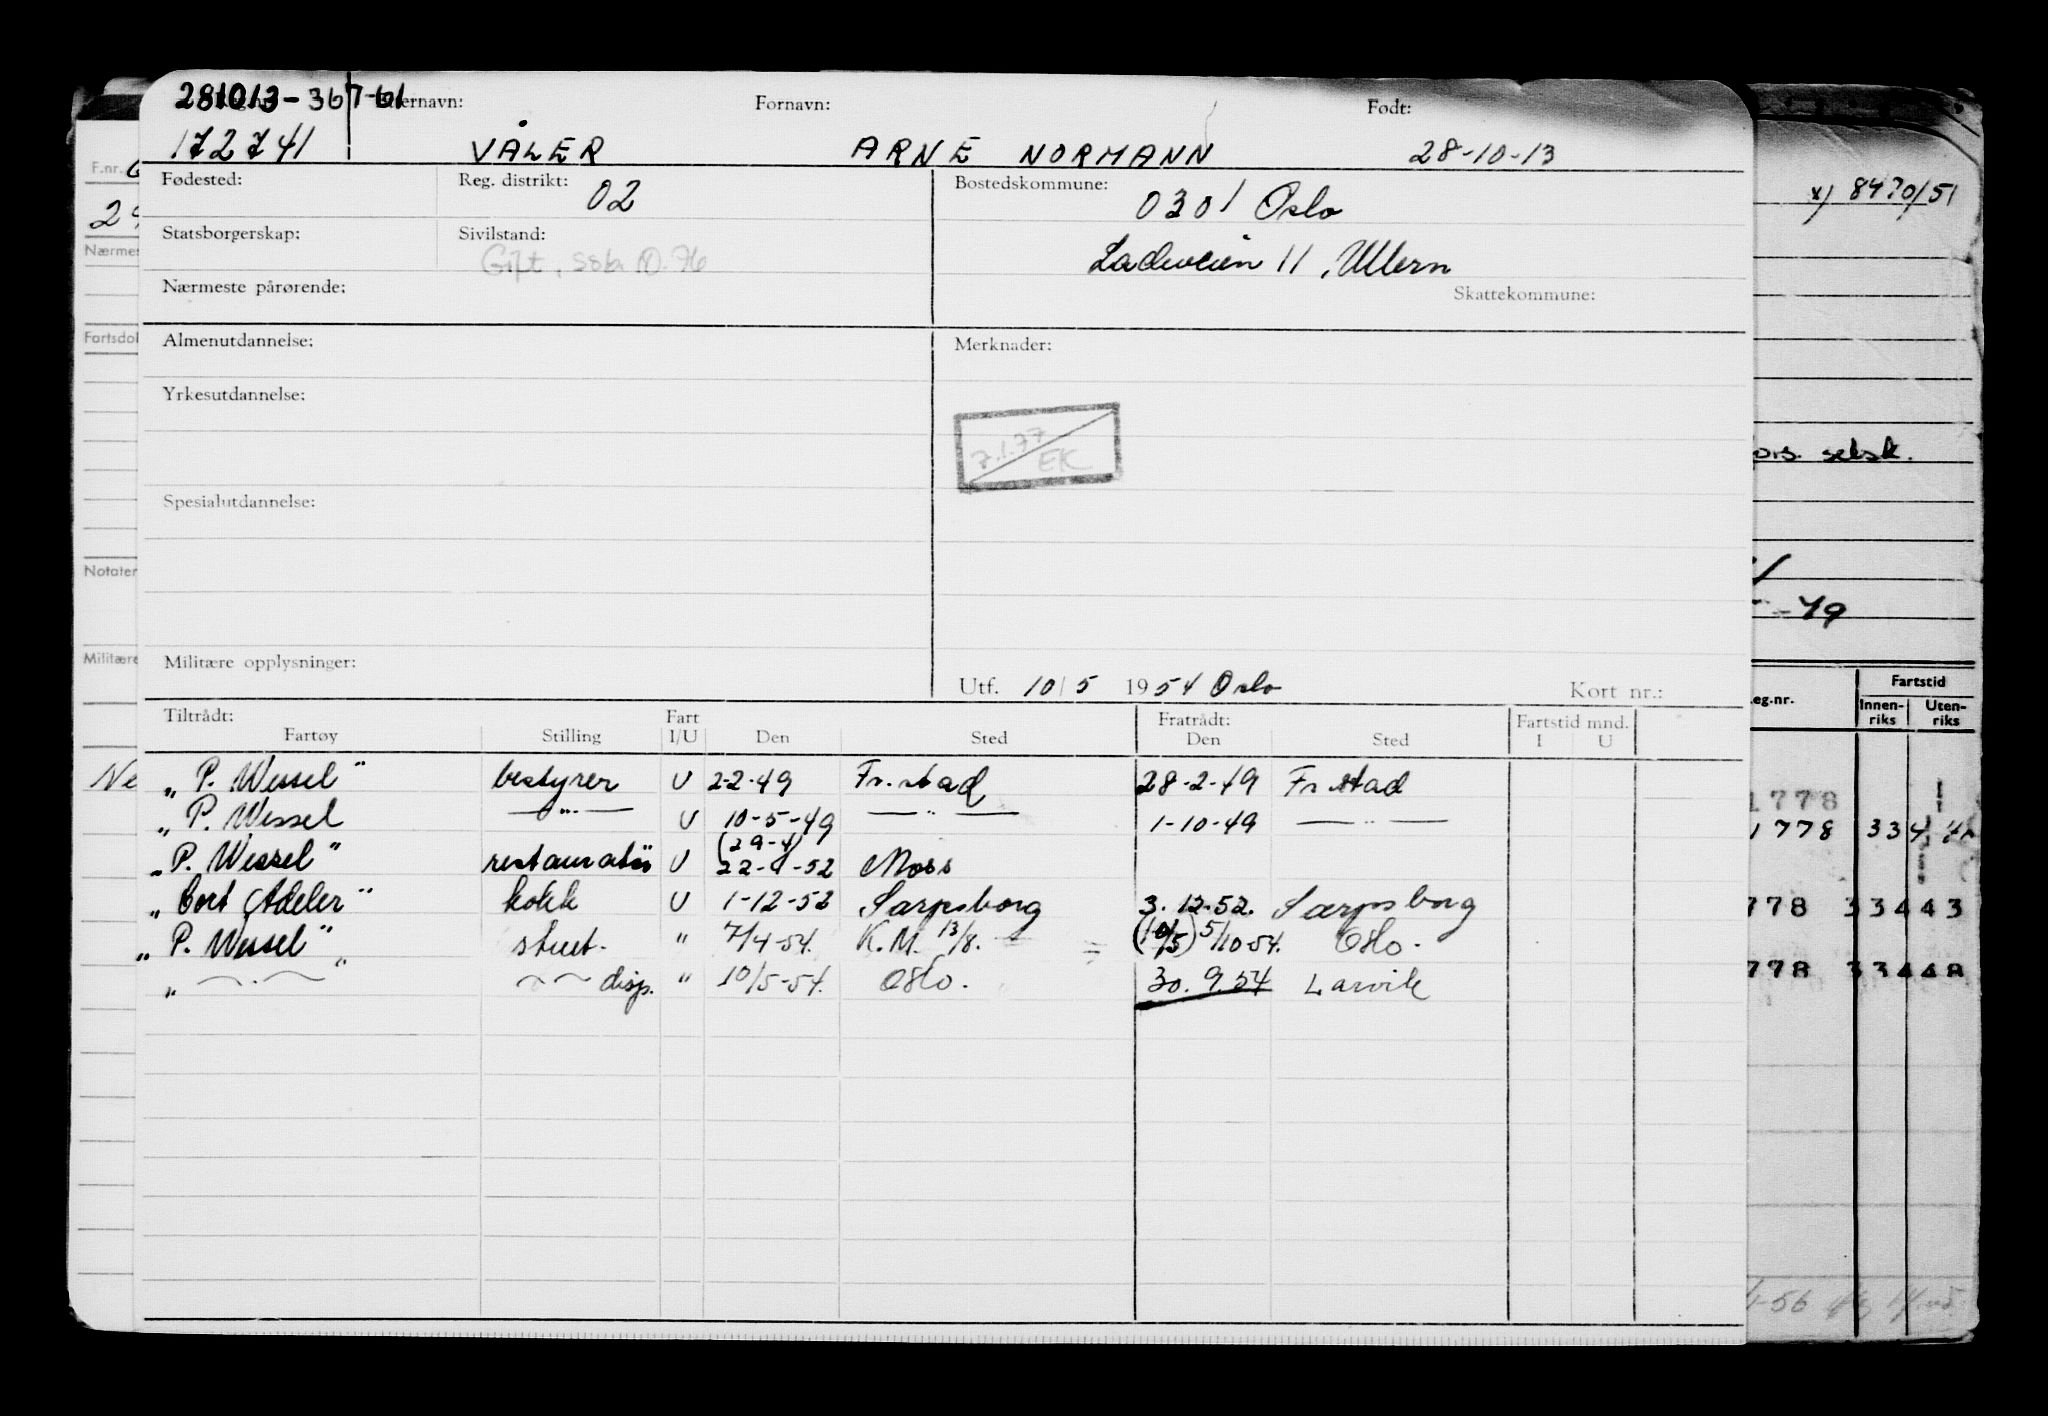 281013-36767 Etternavn: Fornavn: Født:
172741 VÅLER ARNE NORMANN 28-10-13
F.nr.
Fødested: Reg. distrikt: 02 Bostedskommune: 0301 Oslo
x) 8470/51
Statsborgerskap: Sivilstand: Gift, Ladeveien 11, Ullern
Nærmeste pårørende: Skattekommune:
Almenutdannelse: Merknader:
Yrkesutdannelse:
7.1.77 EK
ors. selsk.
Spesialutdannelse:
Notater
-49
Militære opplysninger:
Utf. 10/5 1954 Oslo Kort nr.:
Tiltrådt: Fart Fratrådt: Fartstid mnd.
Fartøy Stilling I/U Den Sted Den Sted I U
eg.nr. Fartstid
Innen- Uten-
riks riks
„P. Wessel" bestyrer U 2-2-49 Fr.stad 28-2-49 Fr.stad
„P. Wessel —"— U 10-5-49 —"— 1-10-49 —"—
(29-4)
„P. Wessel" U 22-4-52 Moss
„Cort Adeler" kokk U 1-12-52 Sarpsborg 3.12.52. Sarpsborg
„P. Wessel" stuet. " 7/4-54. K.M. 13/8. (10/5) 5/10-54. Oslo.
„ —"— " —"— disp. " 10/5-54. Oslo. 30.9.54 Larvik
1778
1778 334
778 33443
778 33448